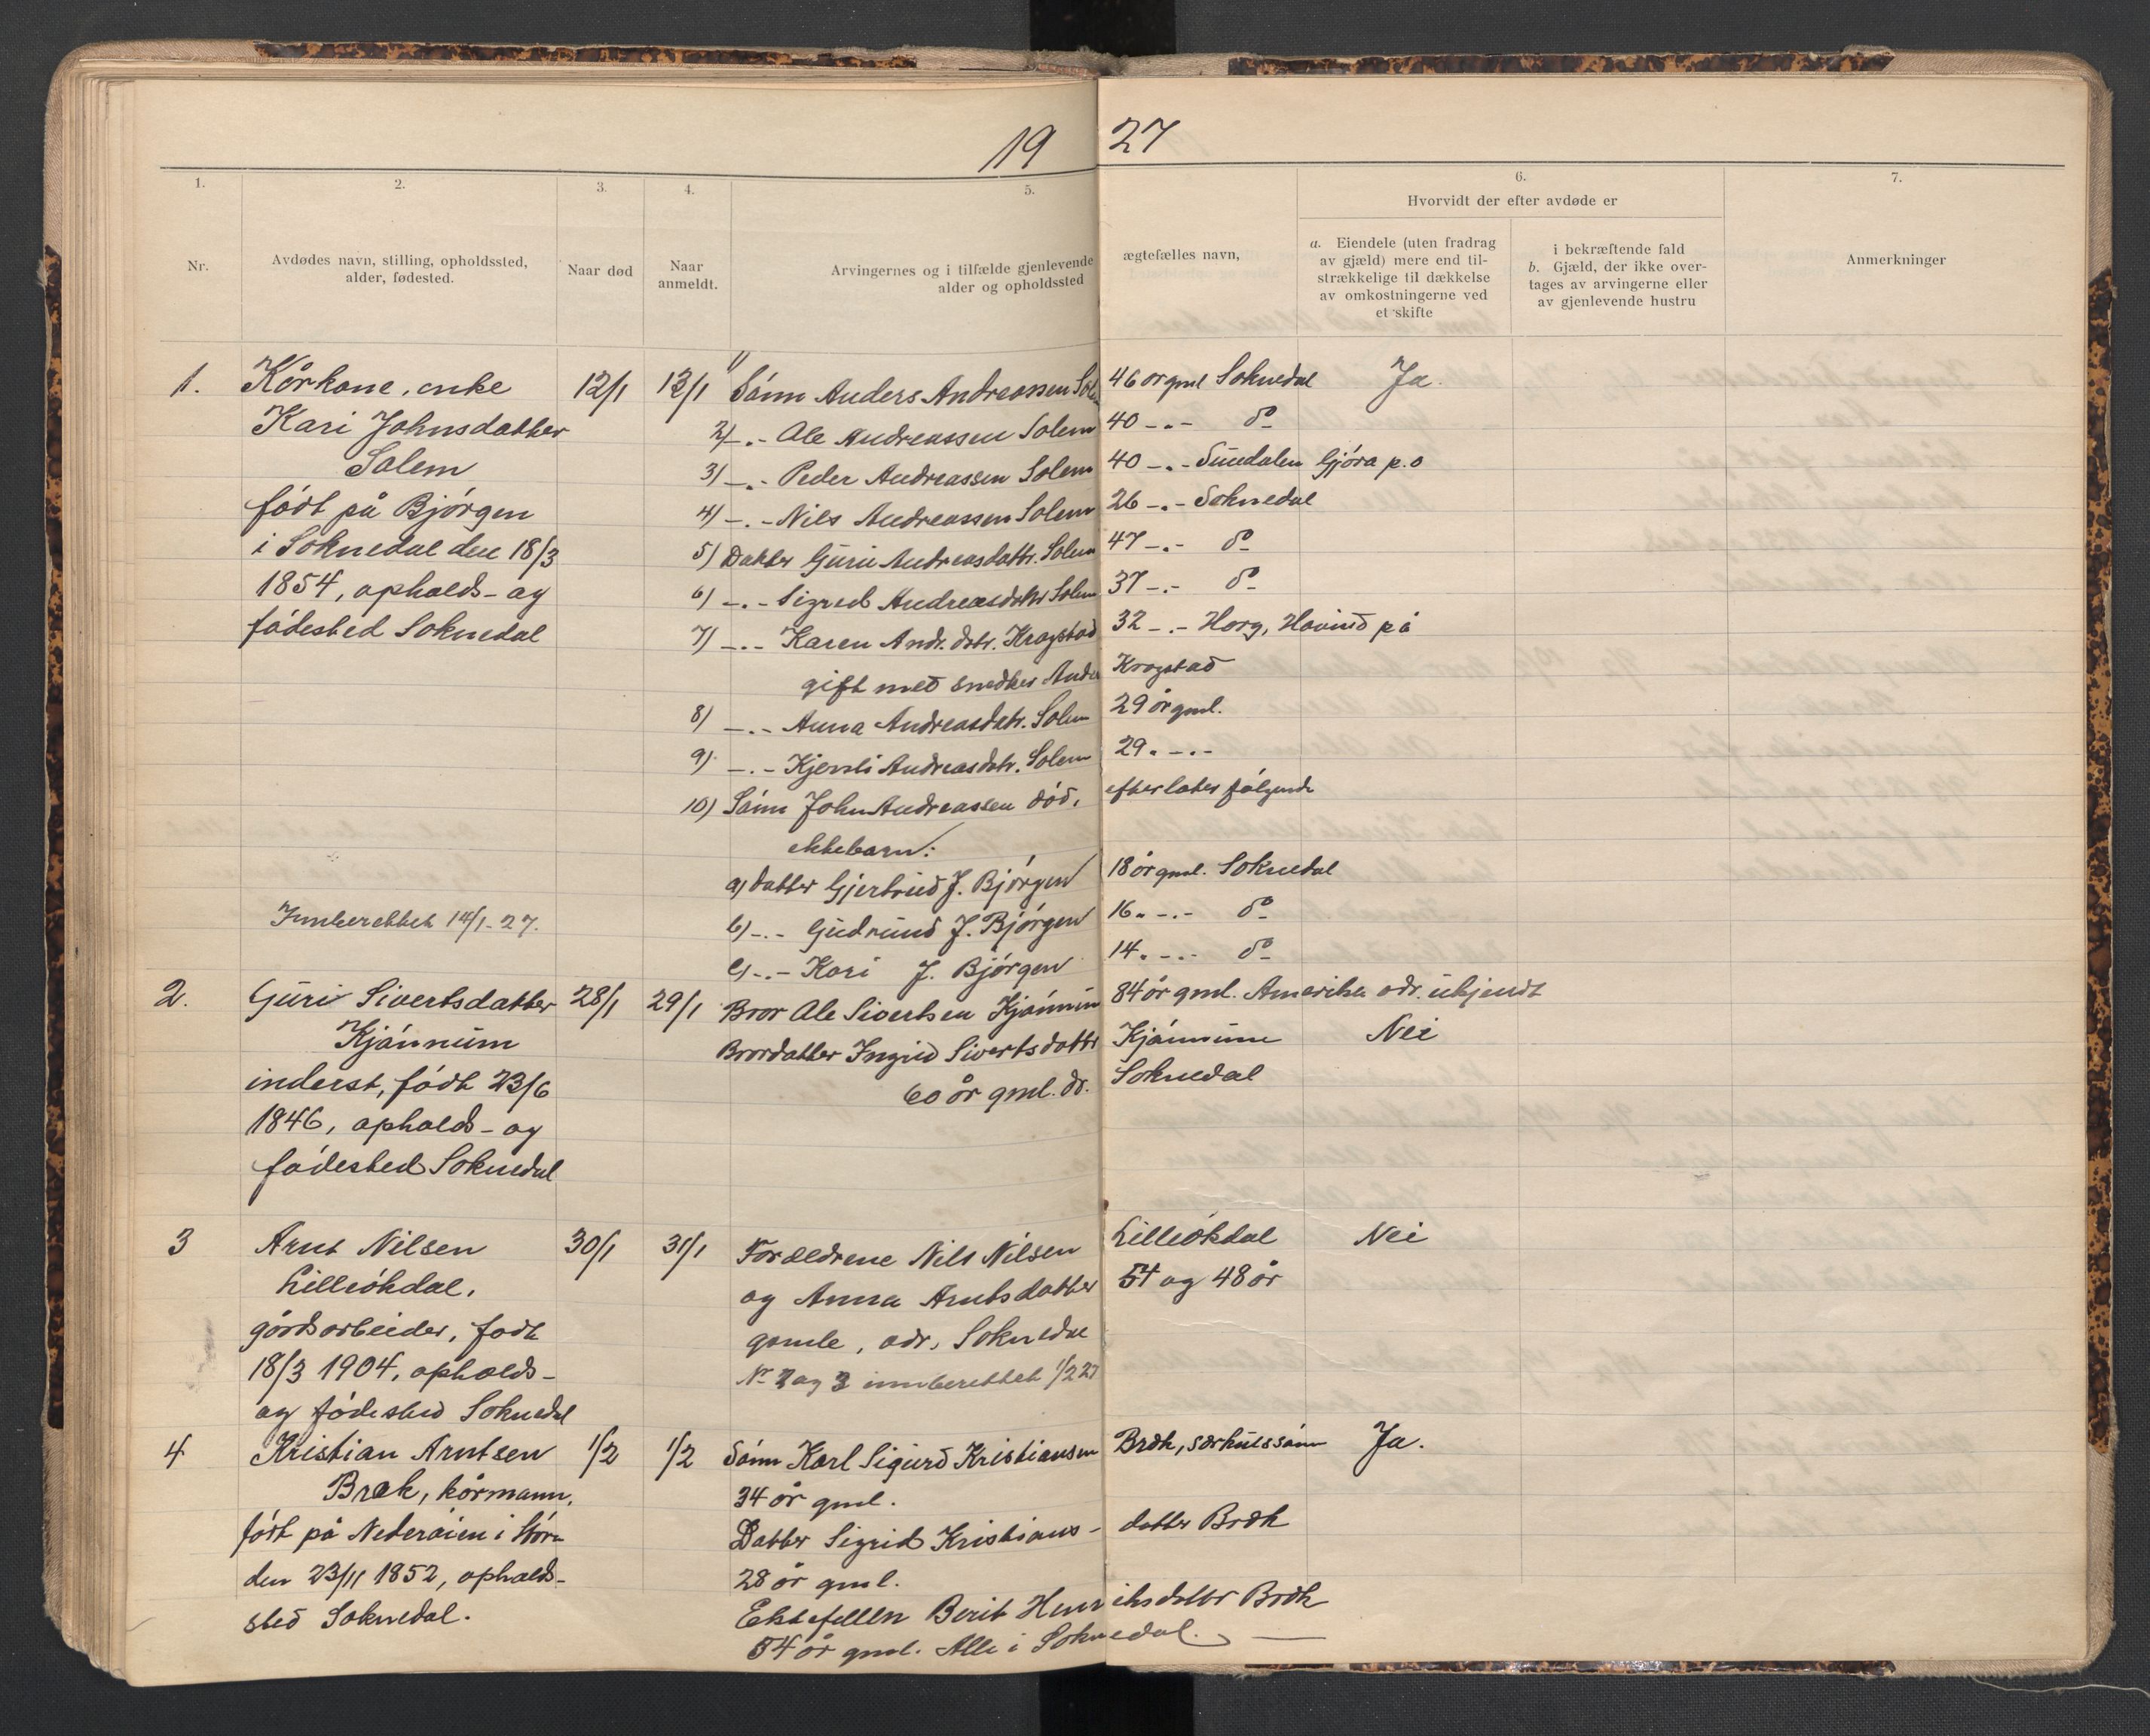 19 27
1. 2. 3. 4. 5. 6. 7.
Nr.
Avdødes navn, stilling, opholdssted,
alder, fødested.
Naar død
Naar
anmeldt.
Arvingernes og i tilfælde gjenlevende ægtefælles navn,
alder og opholdssted
Hvorvidt der efter avdøde er
a. Eiendele (uten fradrag
av gjæld) mere end til-
strækkelige til dækkelse
av omkostningerne ved
et skifte
i bekræftende fald
b. Gjæld, der ikke over-
tages av arvingerne eller
av gjenlevende hustru
Anmerkninger
1.
Kårkone, enke
Kari Johnsdatter
Solem
født på Bjørgen
i Soknedal den 18/3
1854, opholds- og
fødested Soknedal
Innberettet 14/1-27.
12/1
13/1
1) Sønn Anders Andreassen Solem 46 år gml Soknedal Ja.
2) -.- Ole Andreassen Solem 40 -.- do
3) -.- Peder Andreassen Solem 40 -.- Sundalen Gjøra p.o
4) -.- Nils Andreassen Solem 26 -.- Soknedal
5) Datter Guru Andreasdattr. Solem 47 -.- do
6) -.- Sigrid Andreasdattr Solem 37 -.- do
7) -.- Karen Andr. dtr. Krogstad 32 -.- Horg, Hovind på
gift med snedker Anders Krogstad
8) -.- Anna Andreasdatr. Solem 29 år gml.
9) -.- Kjersti Andreasdatr. Solem 29. -.-
10) Sønn John Andreassen død, efterlater følgende
ektebarn:
a) datter Gjertrud J. Bjørgen 18 år gml. Soknedal
b) -.- Gudrund J. Bjørgen 16. -.- do
c) -.- Kari J. Bjørgen 14. -.- do
2.
Guri Sivertsdatter
Kjønnum
inderst, født 23/6
1846, opholds- og
fødested Soknedal
28/1
29/1
Bror Ole Sivertsen Kjønnum 84 år gml. Amerika adr. ukjendt
Brordatter Ingrid Sivertsdattr Kjønnum Nei
60 år gml. do. Soknedal
3
Arnt Nilsen
Lilleökdal,
gårdsarbeider, født
18/3 1904, opholds-
og fødested Soknedal
30/1
31/1
Foreldrene Nils Nilsen Lilleökdal Nei
og Anna Arntsdatter 54 og 48 år
gamle, adr. Soknedal
Nr 2 og 3 innberettet 1/2 27
4
Kristian Arntsen
Bræk, kårmann,
født på Nederøien i Støren
den 23/11 1852, opholds-
sted Soknedal.
1/2
1/2
Sønn Karl Sigurd Kristiansen Bræk, særkulssønn Ja.
34 år gml.
Datter Sigrid Kristians- datter Bræk
28 år gml.
Ektefellen Berit Henriksdattr Bræk
54 år gml. Alle i Soknedal.